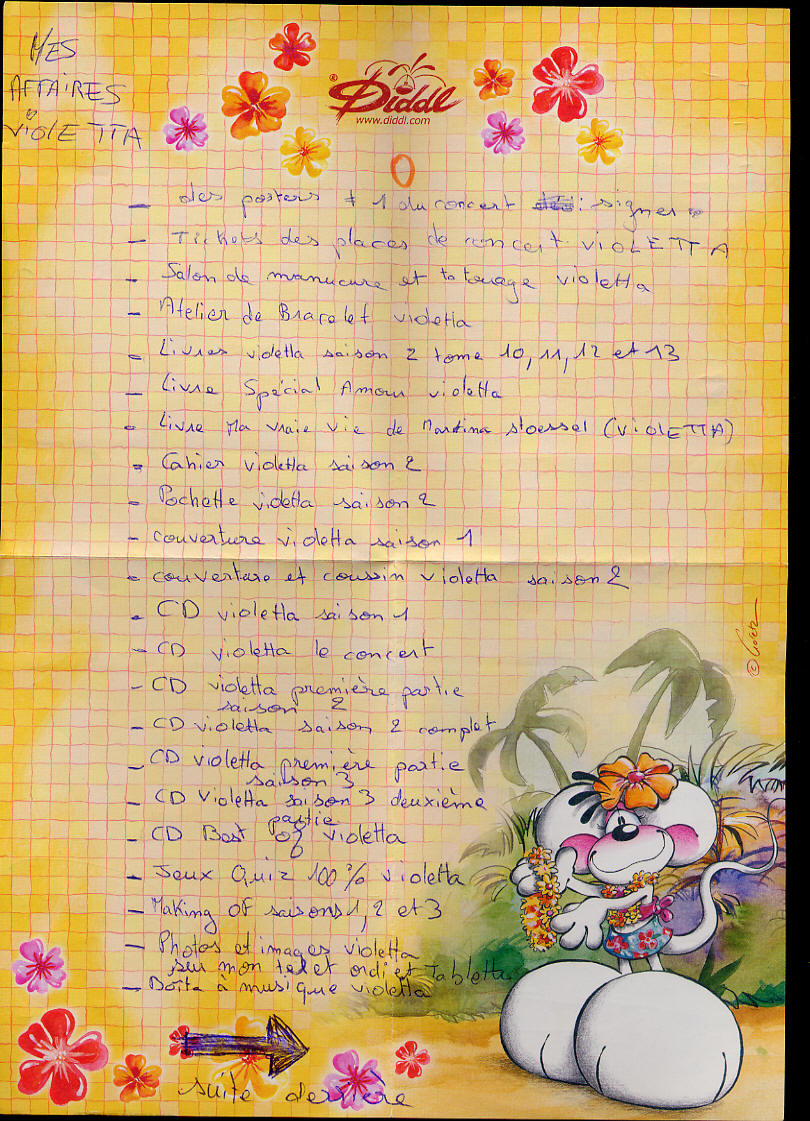 MES
AFFAIRES
VIOLETTA
® Diddl
www.diddl.com
- des posters + 1 du concert : signer
- Tickets des places de concert VIOLETTA
- Salon de manucure et tatouage violetta
- Atelier de Bracelet violetta
- Livres violetta saison 2 tome 10, 11, 12 et 13
- Livre Spécial Amour violetta
- Livre Ma vraie vie de Martina stoessel (VIOLETTA)
- Cahier violetta saison 2
- Pochette violetta saison 2
- couverture violetta saison 1
- couverture et coussin violetta saison 2
- CD violetta saison 1
- CD violetta le concert
- CD violetta première partie
saison 2
- CD violetta saison 2 complet
- CD violetta première partie
saison 3
- CD Violetta saison 3 deuxième
partie
- CD Best of violetta
- Jeux Quiz 100% violetta
- Making Of saisons 1, 2 et 3
- Photos et images violetta
sur mon tel et ordi et tablette
- Boîte à musique violetta
suite derrière
© Goletz